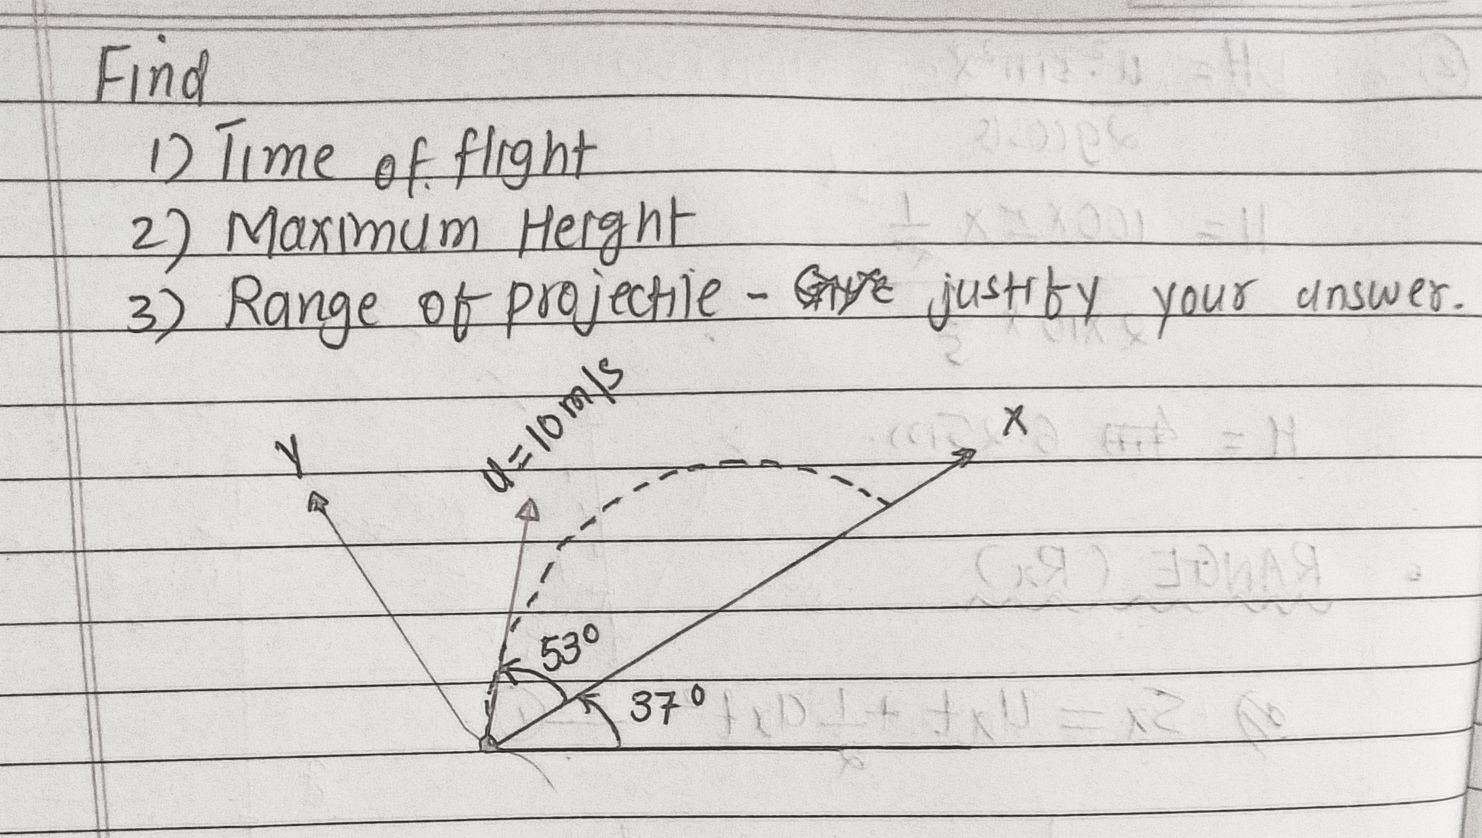 Find
1) Time of flight
2) Maximum Height
3) Range of projectile - justify your answer.
u=10m/s
Y
X
53°
37°